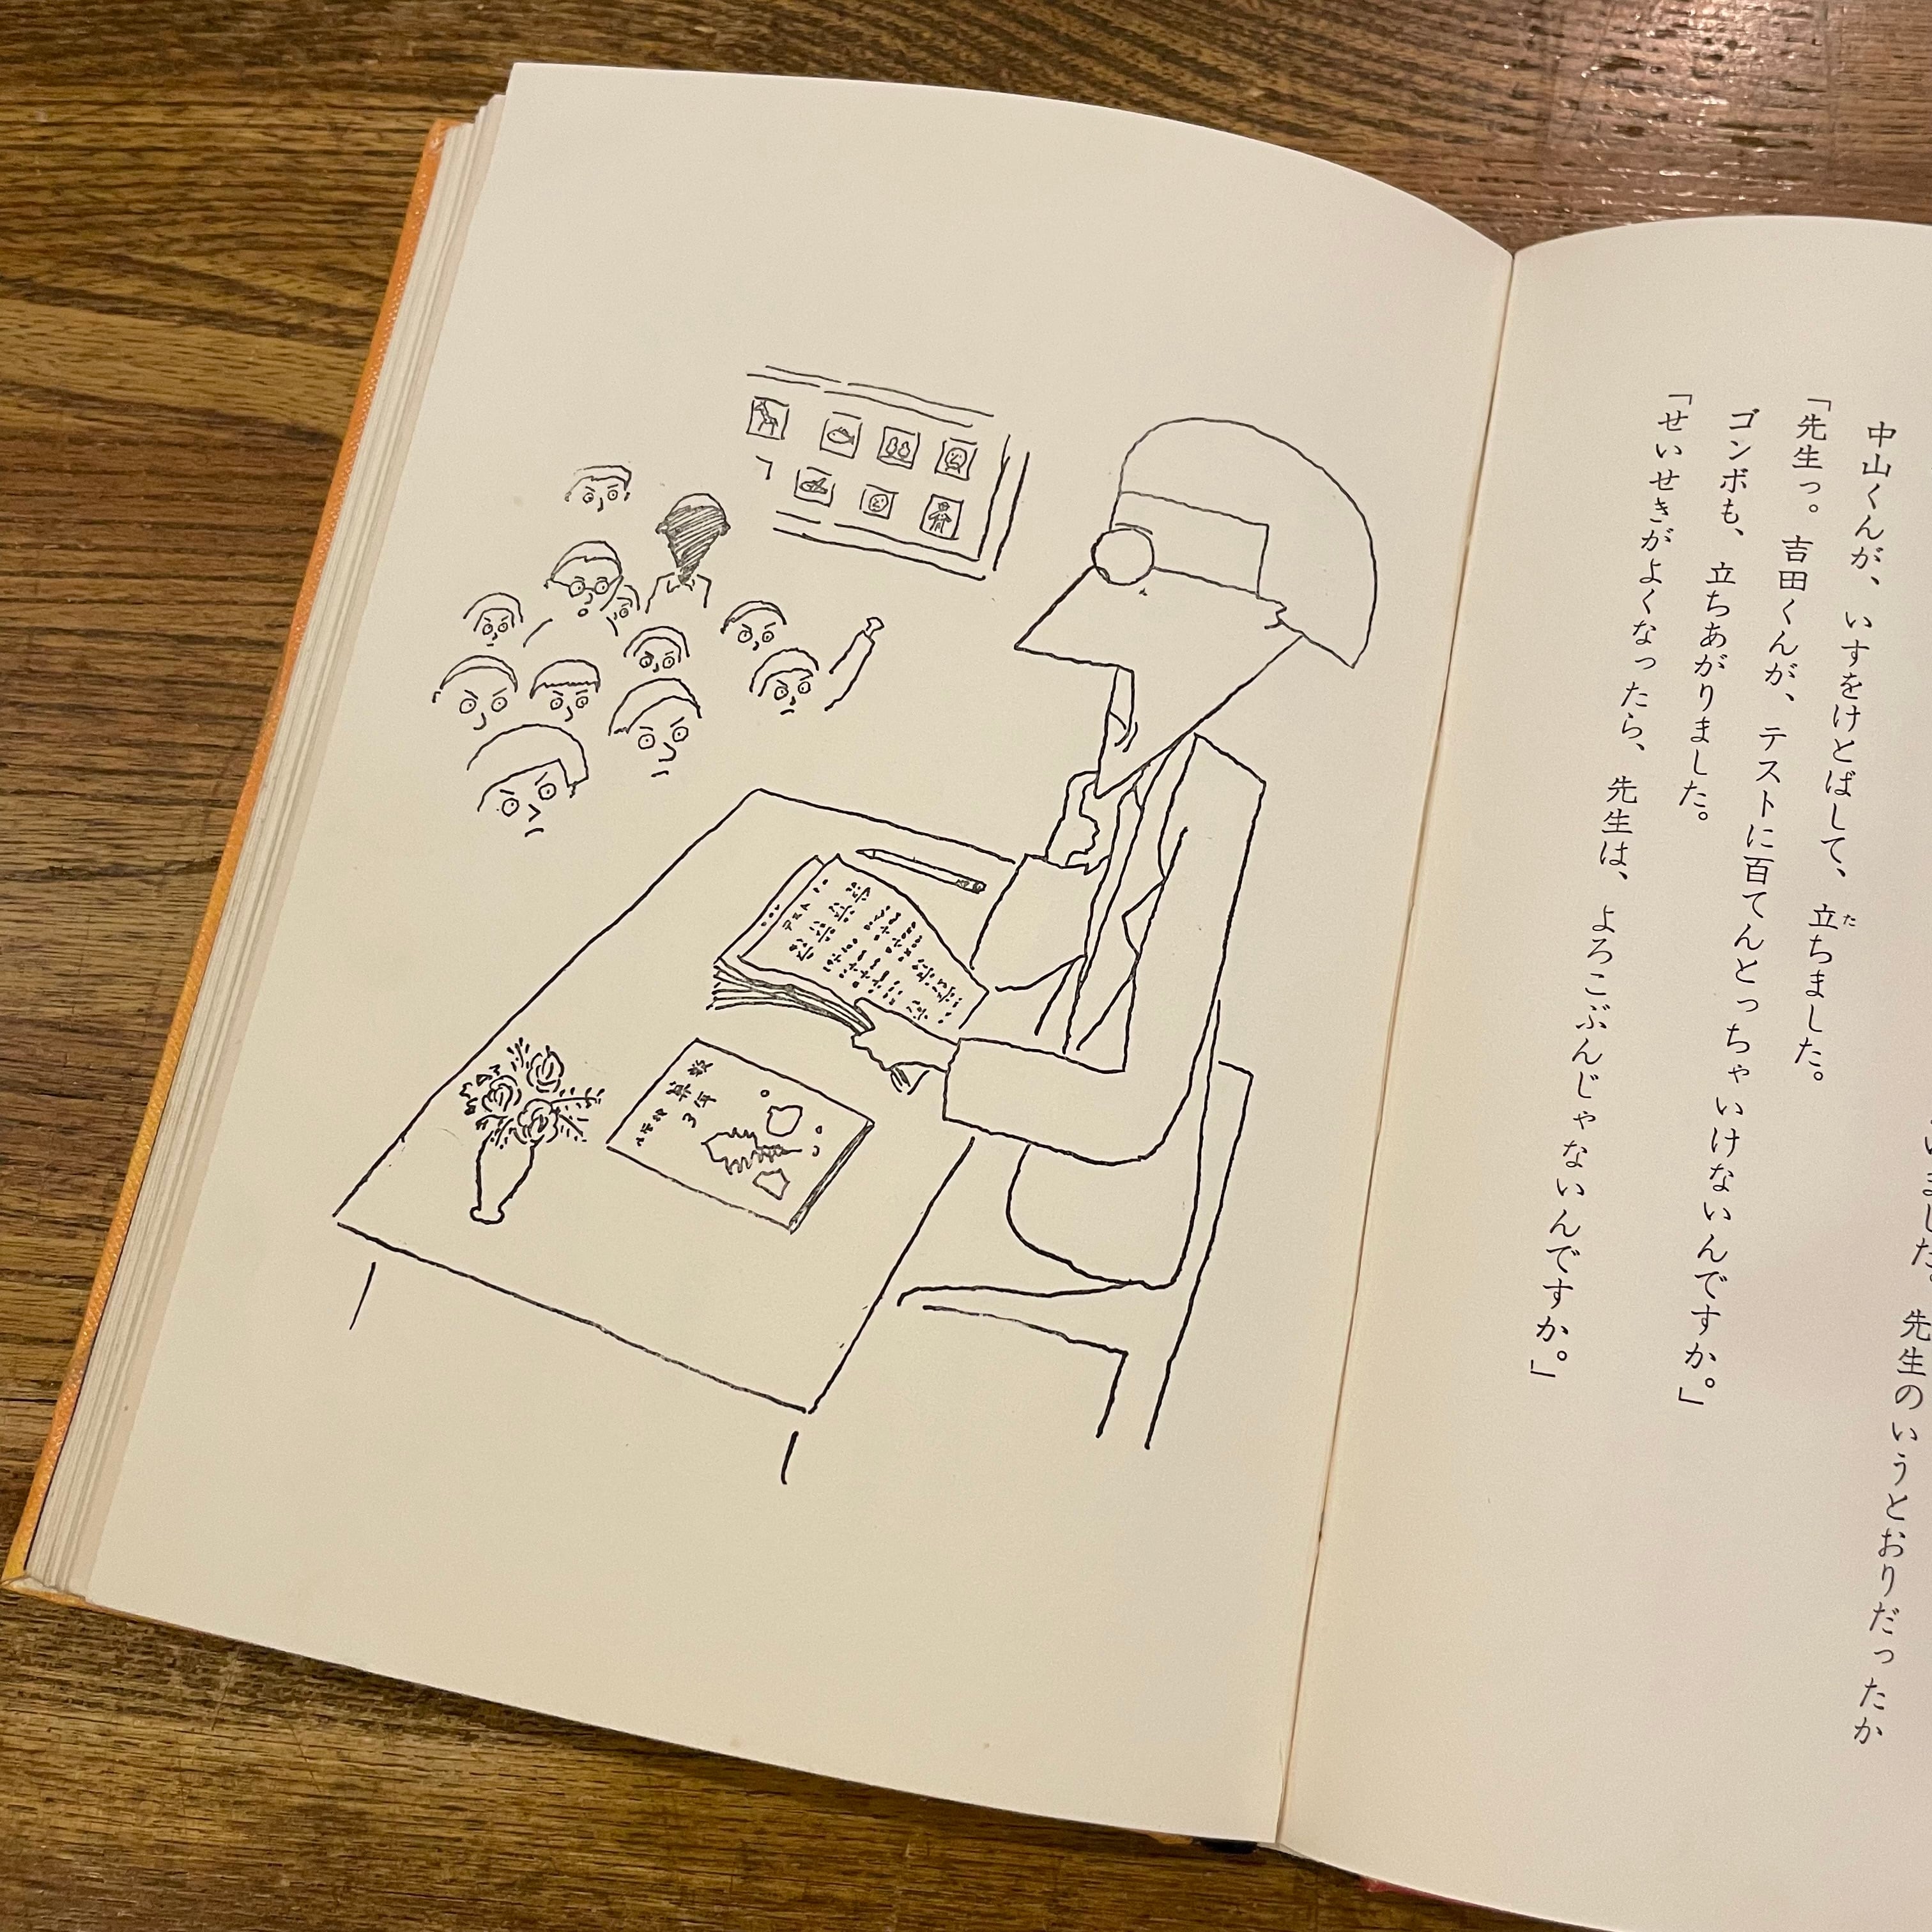 いました。先生のいうとおりだったか
中山くんが、いすをけとばして、立ちました。
た
「先生っ。吉田くんが、テストに百てんとっちゃいけないんですか。」
ゴンボも、立ちあがりました。
「せいせきがよくなったら、先生は、よろこぶんじゃないんですか。」
算
3年